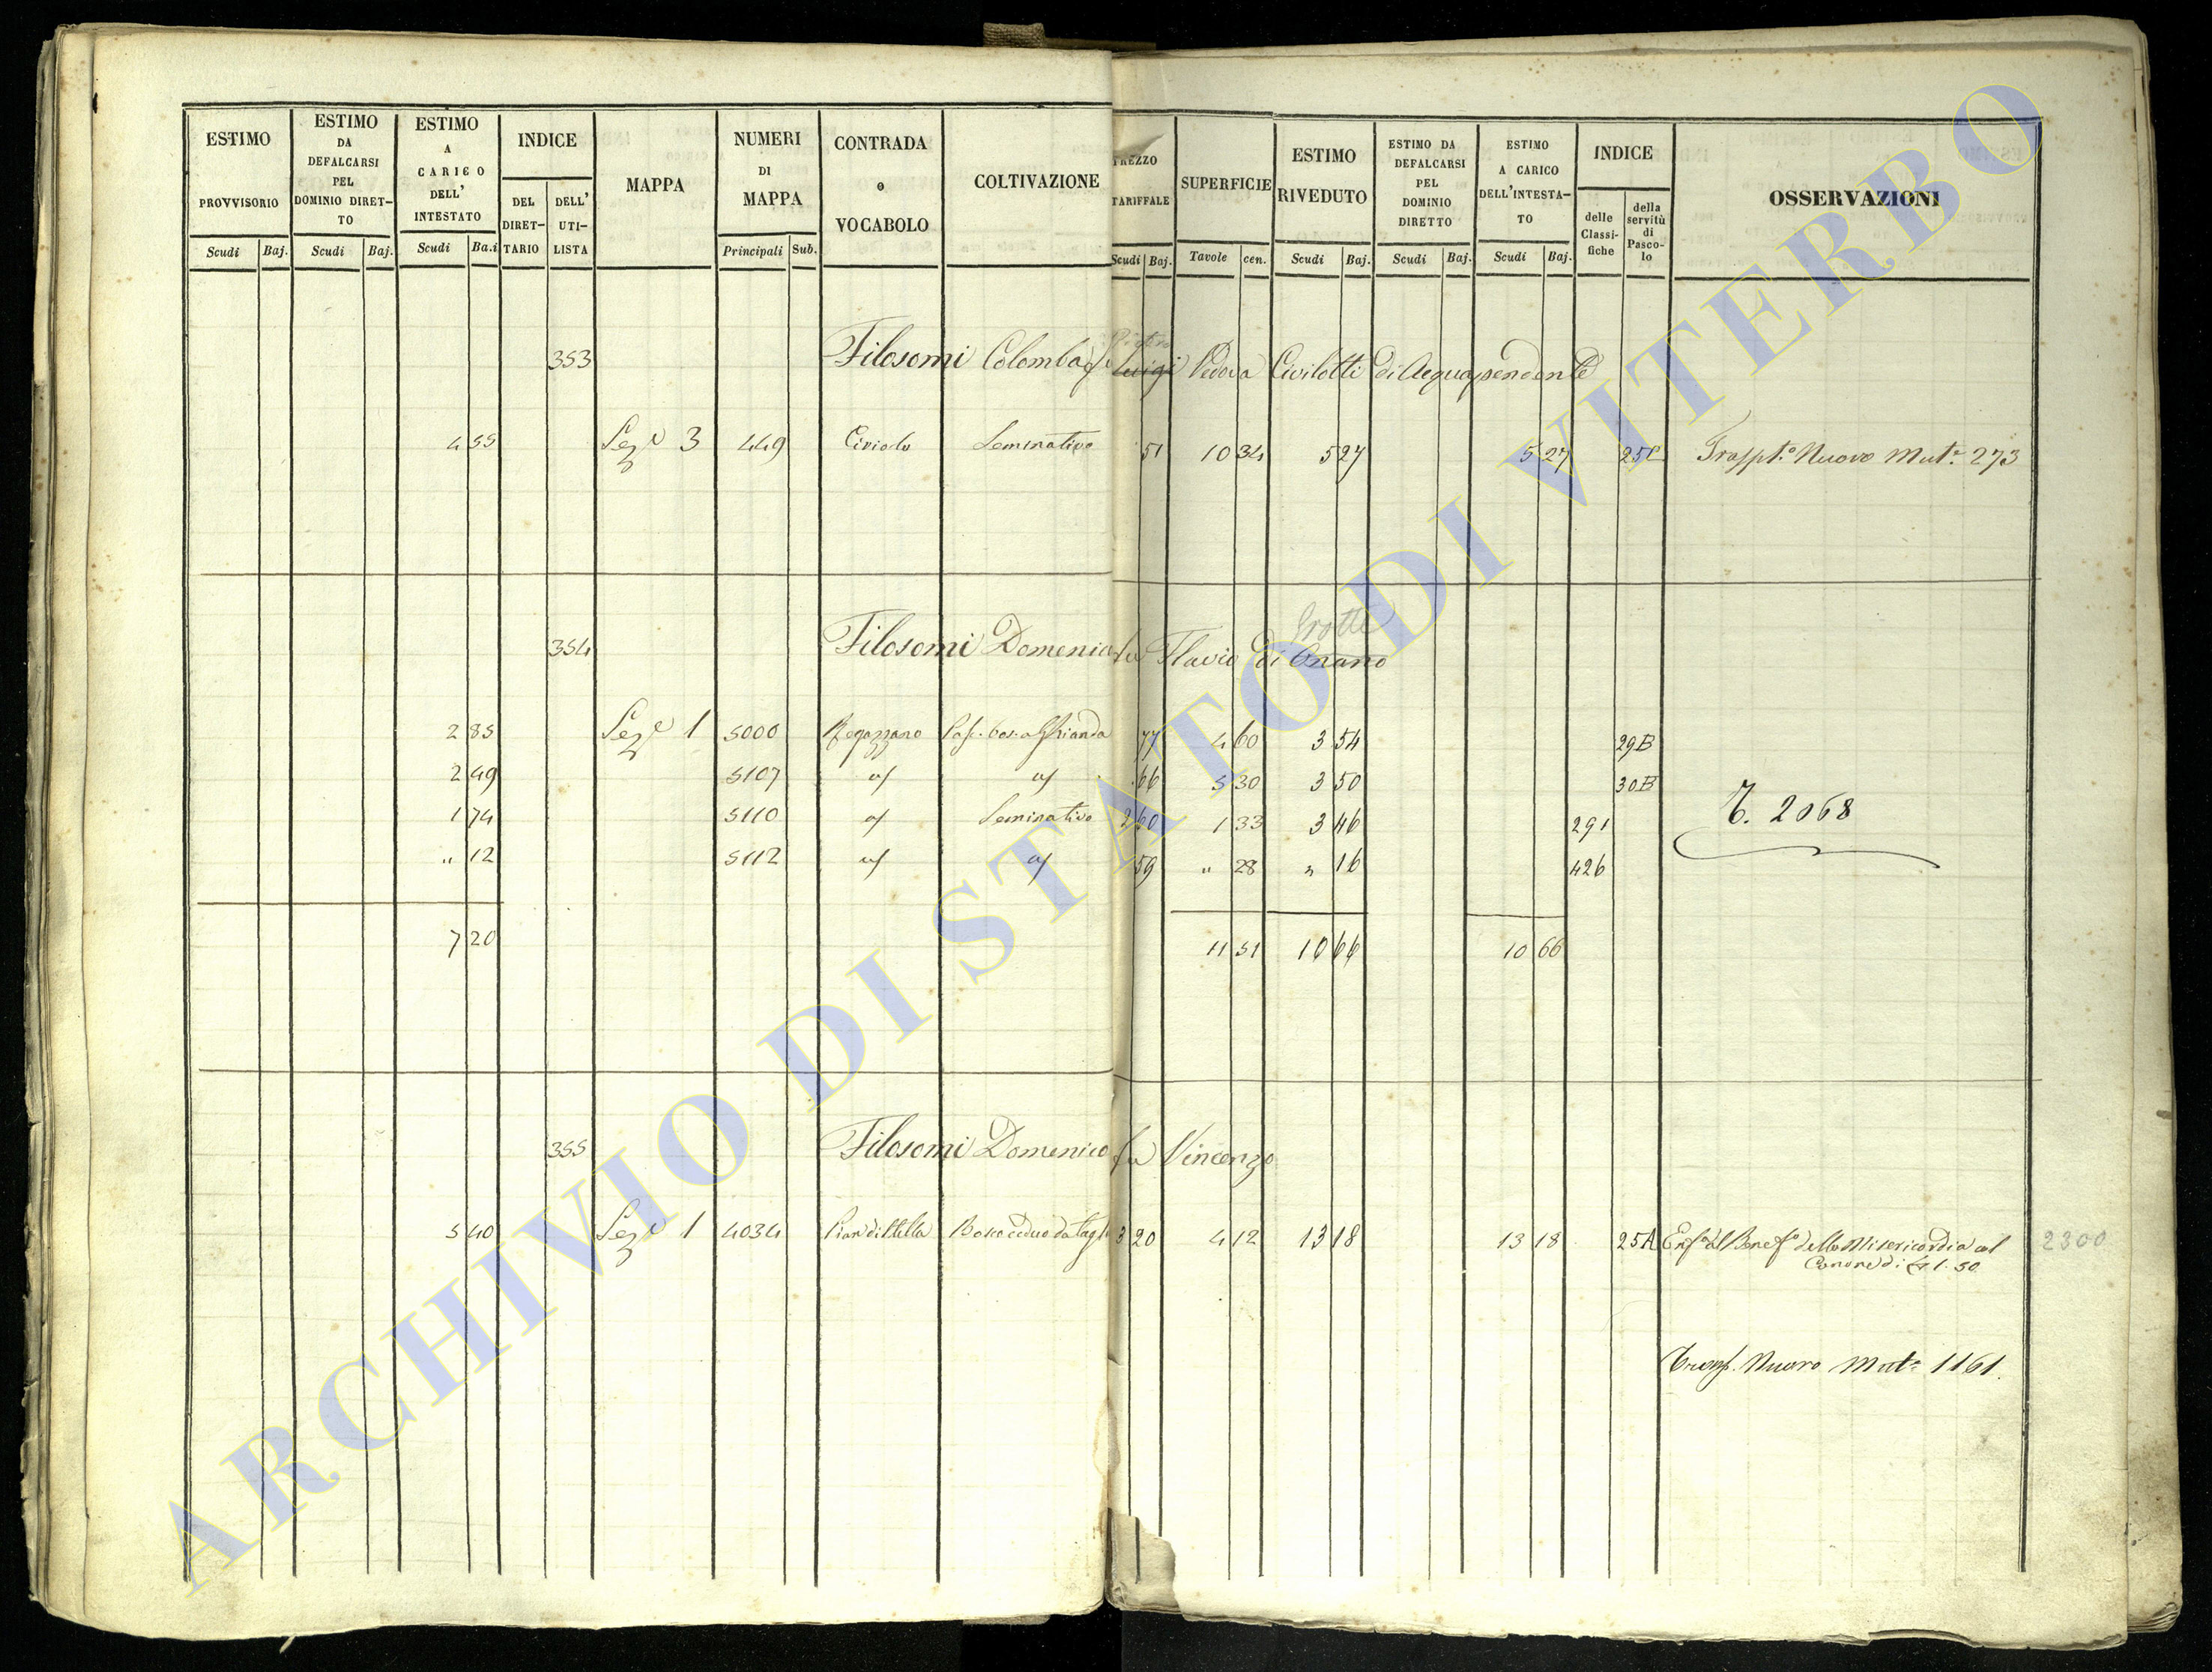 ESTIMO PROVVISORIO Scudi Baj.
ESTIMO DA DEFALCARSI PEL DOMINIO DIRET- TO Scudi Baj.
ESTIMO A CARICO DELL' INTESTATO Scudi Ba.i
INDICE DEL DIRET- TARIO DELL' UTI- LISTA
MAPPA
NUMERI DI MAPPA Principali Sub.
CONTRADA o VOCABOLO
COLTIVAZIONE
PREZZO TARIFFALE Scudi Baj.
SUPERFICIE Tavole cen.
ESTIMO RIVEDUTO Scudi Baj.
ESTIMO DA DEFALCARSI PEL DOMINIO DIRETTO Scudi Baj.
ESTIMO A CARICO DELL'INTESTA- TO Scudi Baj.
INDICE delle Classi- fiche della servitù di Pasco- lo
OSSERVAZIONI
Pietro
353 Filosomi Colomba fu Luigi Vedova Civilotti di Acquapendente
4 55 Sez.e 3 449 Seminativo 51 10 34 5 27 5 27 Traspt.o Nuovo Mut.e 273
Grotte
354 Filosomi Domenico fu Flavio di Onano
2 85 Sez.e 1 5000 Ragazzano 77 4 60 3 54 29B
2 49 5107 66 5 30 3 50 30B
1 74 5110 Seminativo 2 60 1 33 3 46 291
" 12 5112 59 " 28 " 16 426
T. 2068
7 20 11 51 10 66 10 66
355 Filosomi Domenico fu Vincenzo
5 40 Sez.e 1 4034 Bosco ceduo da taglio 3 20 4 12 13 18 13 18 25A della Misericordia 2300
Canone di 1. 50
Trasp. Nuovo Mut.e 1161.
ARCHIVIO DI STATO DI VITERBO